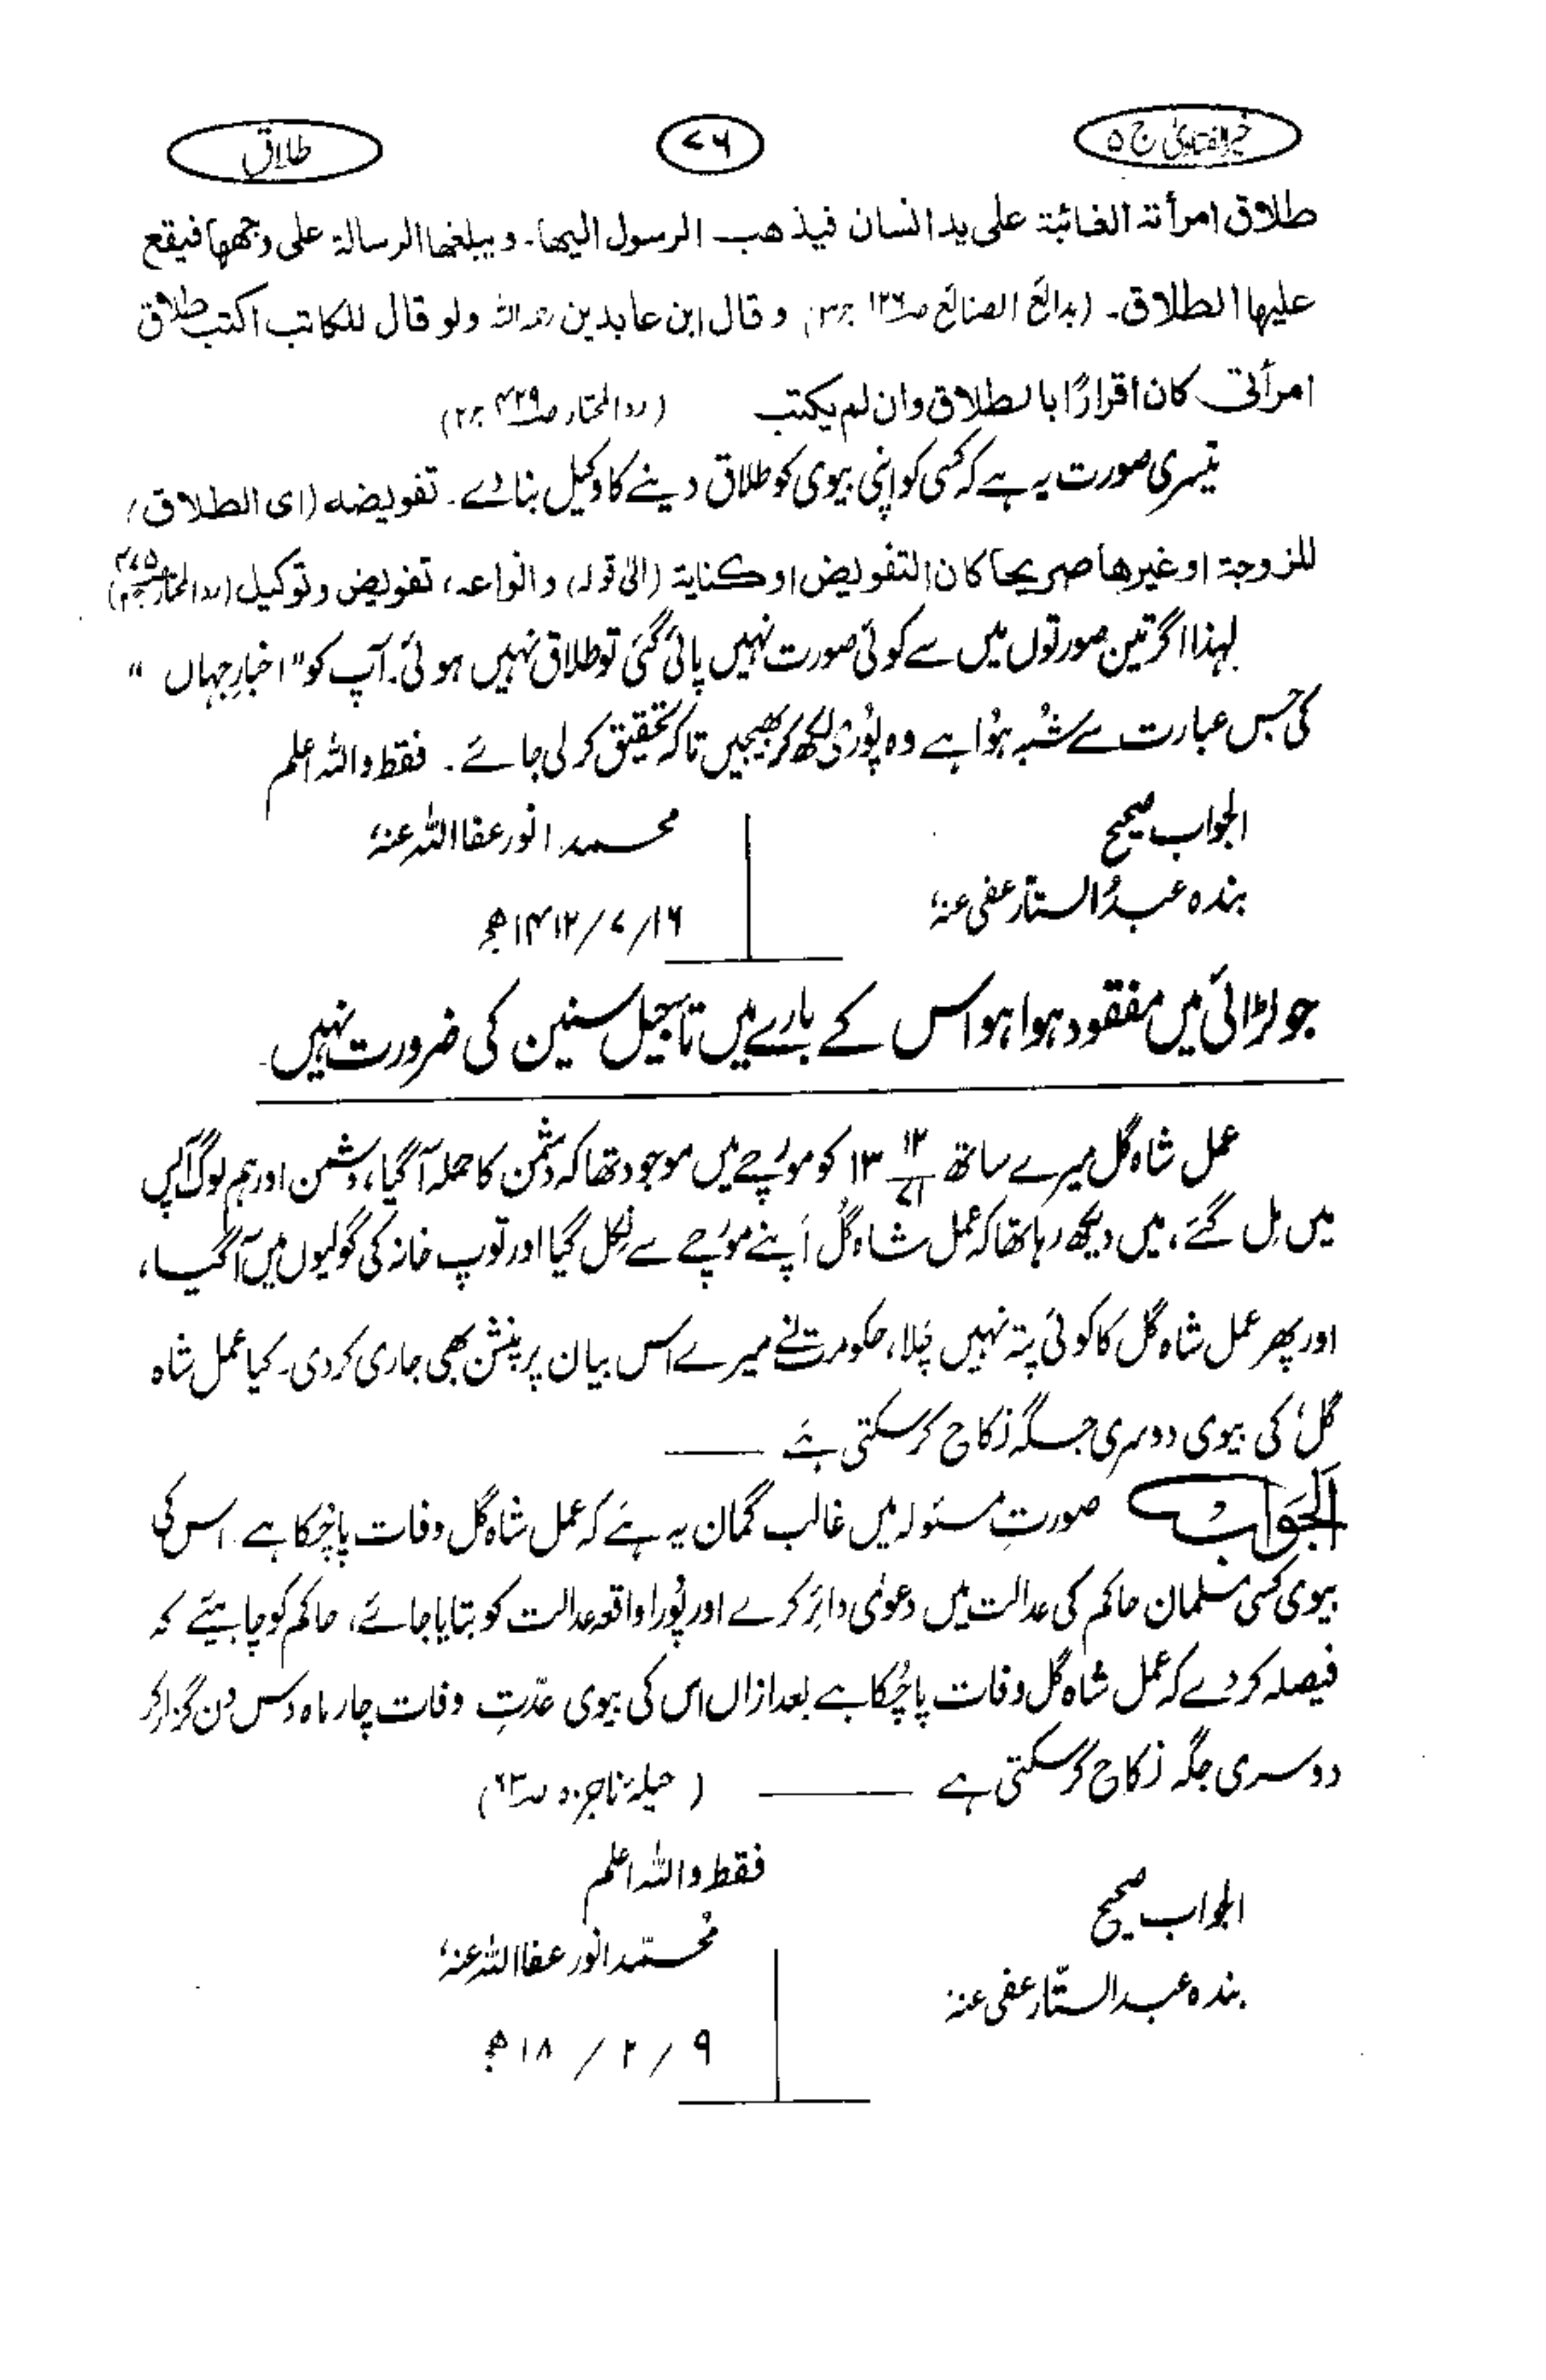 خیر الفتاویٰ ج ۵
۷۶
طلاق
طلاق امرأتہ الغائبۃ علی ید انسان فیذهب الرسول الیھا۔ ویبلغھا الرسالۃ علی وجھھا فیقع
علیھا الطلاق۔ (بدائع الصنائع ص۱۲۶ ج۳) وقال ابن عابدین رحمہ اللہ ولو قال للکاتب اکتب طلاق
امرأتی کان اقرارًا بالطلاق وان لم یکتب (ردالمحتار ص۴۲۹ ج۲)
تیسری صورت یہ ہے کہ کسی کو اپنی بیوی کو طلاق دینے کا وکیل بنا دے۔ تفویضہ (ای الطلاق)
للزوجۃ او غیرھا صریحا کان التفویض او کنایۃ (الیٰ قولہ) وانواعہ، تفویض وتوکیل (ردالمحتار
لہذا اگر تین صورتوں میں سے کوئی صورت نہیں پائی گئی تو طلاق نہیں ہوئی۔ آپ کو "اخبارِ جہاں"
کی جس عبارت سے شُبہ ہوُا ہے وہ پوُری لکھ کر بھیجیں تاکہ تحقیق کر لی جائے۔ فقط واللہ اعلم
الجواب صحیح
بندہ عبدُالستار عفی عنہٗ
محمد انور عفا اللہ عنہٗ
۱۶/۷/۱۴۱۲ھ
جو لڑائی میں مفقود ہوا ہو اس کے بارے میں تاجیل سنین کی ضرورت نہیں۔
عمل شاہ گل میرے ساتھ ۱۳ ۱۲/۷۱ کو مورچے میں موجود تھا کہ دشمن کا حملہ آگیا، دشمن اور ہم لوگ آپس
میں مل گئے، میں دیکھ رہا تھا کہ عمل شاہ گُل اَپنے موُرچے سے نِکل گیا اور توپ خانہ کی گولیوں میں آگیا،
اور پھر عمل شاہ گل کا کوئی پتہ نہیں چَلا، حکومت نے میرے اس بیان پر پنشن بھی جاری کردی۔ کیا عمل شاہ
گلُ کی بیوی دوسری جگہ نکاح کرسکتی ہے
اَلجَوَابْ صورتِ مسئولہ میں غالب گمان یہ ہے کہ عمل شاہ گل وفات پا چُکا ہے۔ اس کی
بیوی کسی مسلمان حاکم کی عدالت میں دعوٰی دائر کرے اور پُورا واقعہ عدالت کو بتایا جائے، حاکم کو چاہیئے کہ
فیصلہ کر دے کہ عمل شاہ گل وفات پا چُکا ہے بعد ازاں اس کی بیوی عدّتِ وفات چار ماہ دس دن گزار کر
دوسری جگہ نکاح کرسکتی ہے (حیلۂ ناجزہ ص۶۳)
فقط واللہ اعلم
الجواب صحیح
بندہ عبدالستّار عفی عنہٗ
مُحمّد انور عفا اللہ عنہٗ
۹/۲/۱۸ھ